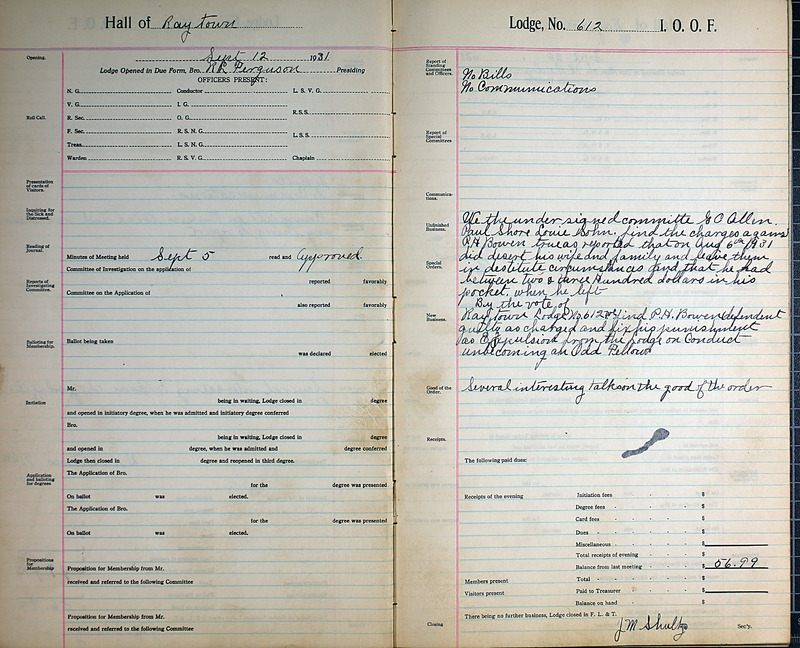 Hall of Raytown
Sept 12 1931.
Opening.
Lodge Opened in Due Form, Bro. R.R. Ferguson Presiding
OFFICERS PRESENT:
N. G. Conductor L. S. V. G.
V. G. I. G.
R.S.S.
Roll Call.
R. Sec. O. G.
F. Sec. R. S. N. G.
L.S.S.
Treas. L. S. N. G.
Warden R. S. V. G. Chaplain
Presentation
of cards of
Visitors.
Inquiring for
the Sick and
Distressed.
Reading of
Journal.
Minutes of Meeting held Sept 5 read and approved
Committee of Investigation on the application of
reported favorably
Reports of
Investigating
Committee.
Committee on the Application of
also reported favorably
Balloting for
Membership.
Ballot being taken
was declared elected
Mr.
Initiation
being in waiting, Lodge closed in degree
and opened in initiatory degree, when he was admitted and initiatory degree conferred
Bro.
being in waiting, Lodge closed in degree
and opened in degree, when he was admitted and degree conferred
Lodge then closed in degree and reopened in third degree.
Application
and balloting
for degrees
The Application of Bro.
for the degree was presented
On ballot was elected.
The Application of Bro.
for the degree was presented
On ballot was elected.
Propositions
for
Membership
Proposition for Membership from Mr.
received and referred to the following Committee
Proposition for Membership from Mr.
received and referred to the following Committee
Lodge, No. 612 I. O. O. F.
Report of
Standing
Committees
and Officers.
No Bills
No Communications
Report of
Special
Committees
Communica-
tions.
Unfinished
Business.
We the under signed committe G O Allen.
Paul Shore Louie Bohn. find the charges agains
P.H Bowen true as reported that on Aug 6th 1931
did desert his wife and family and leave them
Special
Orders.
in destitute circumstances and that he had
between two & three Hundred dollars in his
pocket, when he left
By the vote of
New
Business.
Raytown Lodge No 612 we find P.H. Bowen defendent
guilty as charged and fix his punishment
as Expulsion from the Lodge on Conduct
unbecoming an Odd Fellow
Good of the
Order.
Several interesting talks on the good of the order
Receipts.
The following paid dues:
Receipts of the evening Initiation fees $
Degree fees $
Card fees $
Dues $
Miscellaneous $
Total receipts of evening $
Balance from last meeting $ 56.99
Members present Total $
Visitors present Paid to Treasurer $
Balance on hand $
There being no further business, Lodge closed in F. L. & T.
Closing
J M Shultz Sec'y.